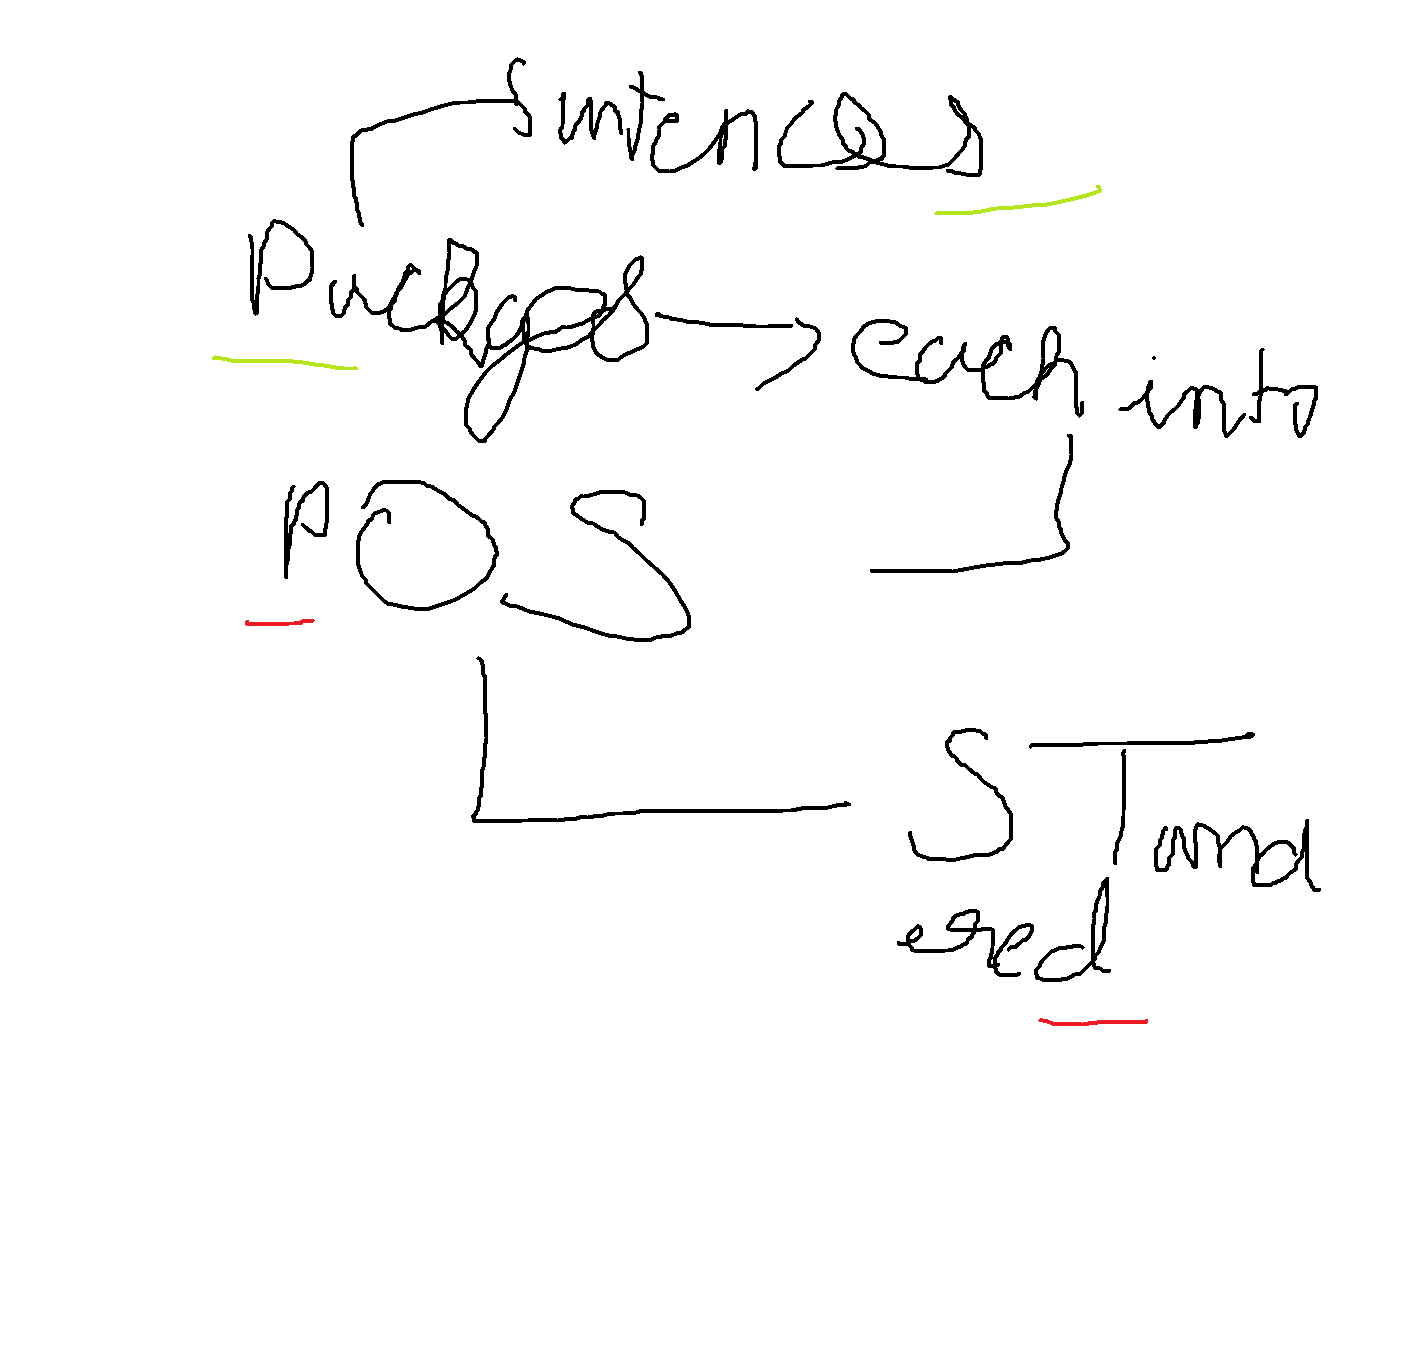 Sintences
Packges each into
POS
STand
ered